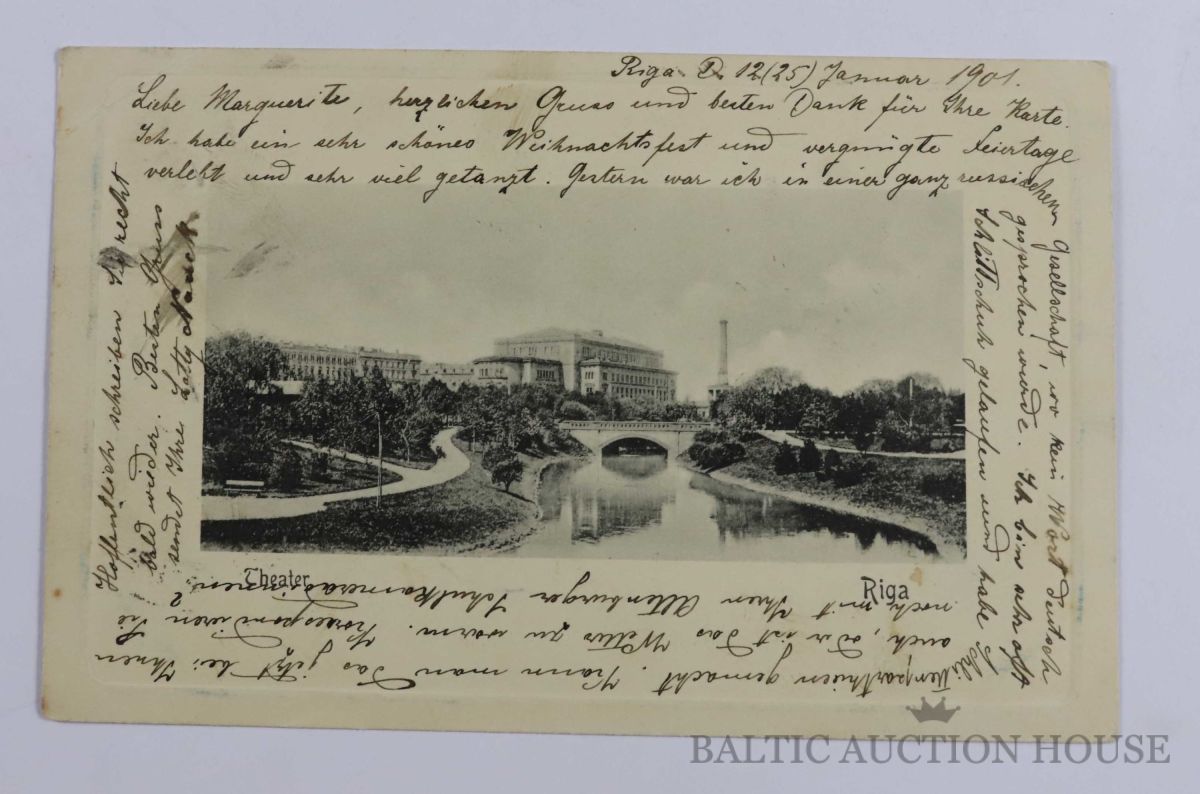 Riga d. 12 (25) Januar 1901.
Liebe Marguerite, herzlichen Gruss und besten Dank für Ihre Karte.
Ich habe ein sehr schönes Weihnachtsfest und vergnügte Feiertage
verlebt und sehr viel getanzt. Gestern war ich in einer ganz russischen
Gesellschaft, wo kein Wort deutsch
gesprochen wurde. Ich bin sehr oft
Schlittschuh gelaufen und habe
Schlittenparthieen gemacht. Kann man das jetzt bei Ihnen
auch, od. ist das Wetter zu warm. Korrespondieren Sie
noch mit Ihren Altenburger Schulkameradinnen?
Hoffentlich schreiben Sie recht
bald wieder. Besten Gruss
sendet Ihre Lotty
Theater
Riga
BALTIC AUCTION HOUSE